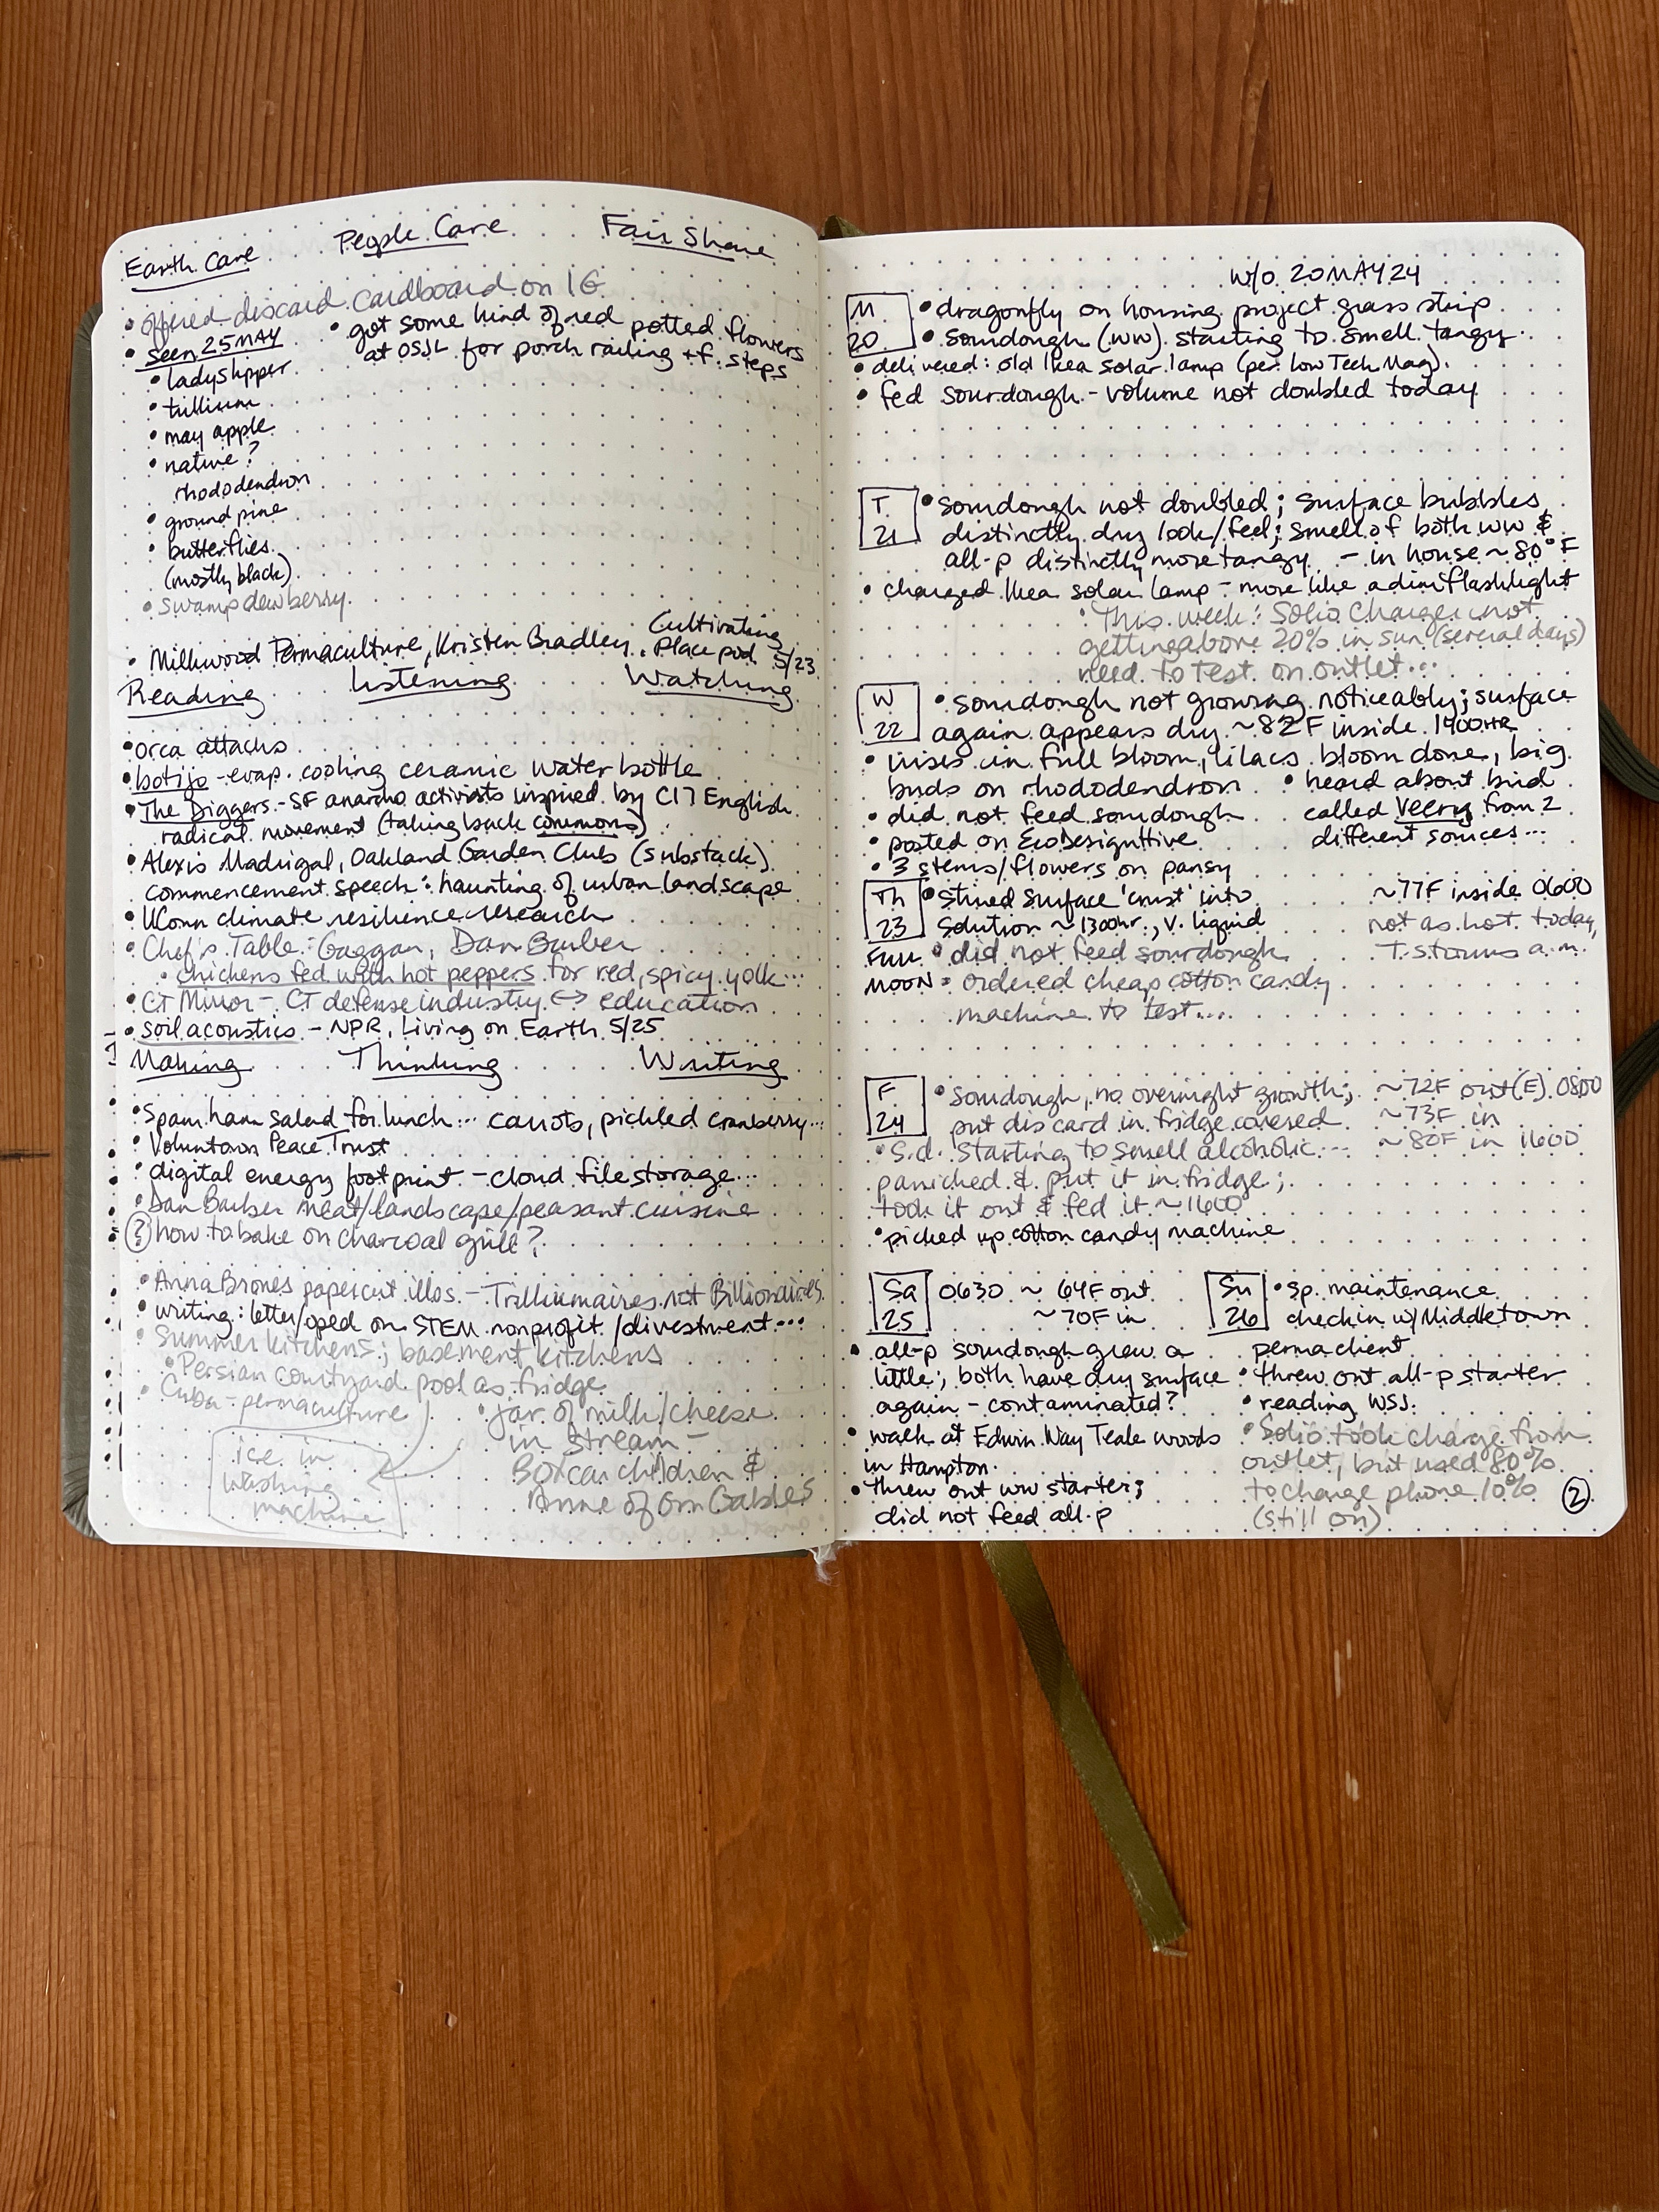 Earth Care People Care Fair Share
• offered discard cardboard on IG
• seen 25 MAY
• ladyslipper
• trillium
• may apple
• native?
rhododendron
• ground pine
• butterflies
(mostly black)
• swamp dewberry
• got some kind of red potted flowers
at OSJL for porch railing + f. steps
• Milkwood Permaculture, Kristen Bradley, Cultivating
Place pod 5/23
Reading Listening Watching
• orca attacks
• botijo - evap. cooling ceramic water bottle
• The Diggers - SF anarcho activists inspired by C17 English
radical movement (taking back commons)
• Alexis Madrigal, Oakland Garden Club (substack)
commencement speech: haunting of urban landscape
• UConn climate resilience research
• Chef's Table: Gaggan, Dan Barber
• chickens fed with hot peppers for red, spicy yolk...
• CT Mirror - CT defense industry ↔ education
• soil acoustics - NPR, Living on Earth 5/25
Making Thinking Writing
• Spam ham salad for lunch... carrots, pickled cranberry...
• Voluntown Peace Trust
• digital energy footprint - cloud file storage...
• Dan Barber meat/landscape/peasant cuisine
? how to bake on charcoal grill?
• Anna Brones papercut illos. - Trilliumaires not Billionaires
• writing: letter/oped on STEM nonprofit/divestment...
• Summer kitchens; basement kitchens
• Persian courtyard pool as fridge
• Cuba - permaculture
• jar of milk/cheese
in stream -
Boxcar children &
Anne of Grn Gables
ice in
washing
machine
w/o 20 MAY 24
M
20
• dragonfly on housing project grass strip
• sourdough (ww) starting to smell tangy
• delivered: old Ikea solar lamp (per Low Tech Mag)
• fed sourdough - volume not doubled today
T
21
• sourdough not doubled; surface bubbles
distinctly dry look/feel; smell of both ww &
all-p distinctly more tangy - in house ~80°F
• charged Ikea solar lamp - more like a dim flashlight
• This week: Solio charger not
getting above 20% in sun (several days)
need to test on outlet...
W
22
• sourdough not growing noticeably; surface
again appears dry ~82F inside 1900HR
• irises in full bloom, lilacs bloom done, big
buds on rhododendron
• heard about bird
called Veery from 2
different sources...
• did not feed sourdough
• posted on EcoDesignHive
• 3 stems/flowers on pansy
Th
23
FULL
MOON
• stirred surface 'crust' into
solution ~1300hr., v. liquid
• did not feed sourdough
• ordered cheap cotton candy
machine to test...
~77F inside 0600
not as hot today,
T.storms a.m.
F
24
• sourdough, no overnight growth;
put discard in fridge covered
• S.d. starting to smell alcoholic...
panicked & put it in fridge;
took it out & fed it ~1600
• picked up cotton candy machine
~72F out (E) 0800
~73F in
~80F in 1600
Sa
25
0630 ~ 64F out
~70F in
• all-p sourdough grew a
little; both have dry surface
again - contaminated?
• walk at Edwin Way Teale woods
in Hampton
• threw out ww starter;
did not feed all-p
Su
26
• sp. maintenance
check in w/Middletown
perma client
• threw out all-p starter
• reading WSJ
• Solio took charge from
outlet, but used 80%
to charge phone 10%
(still on)
2